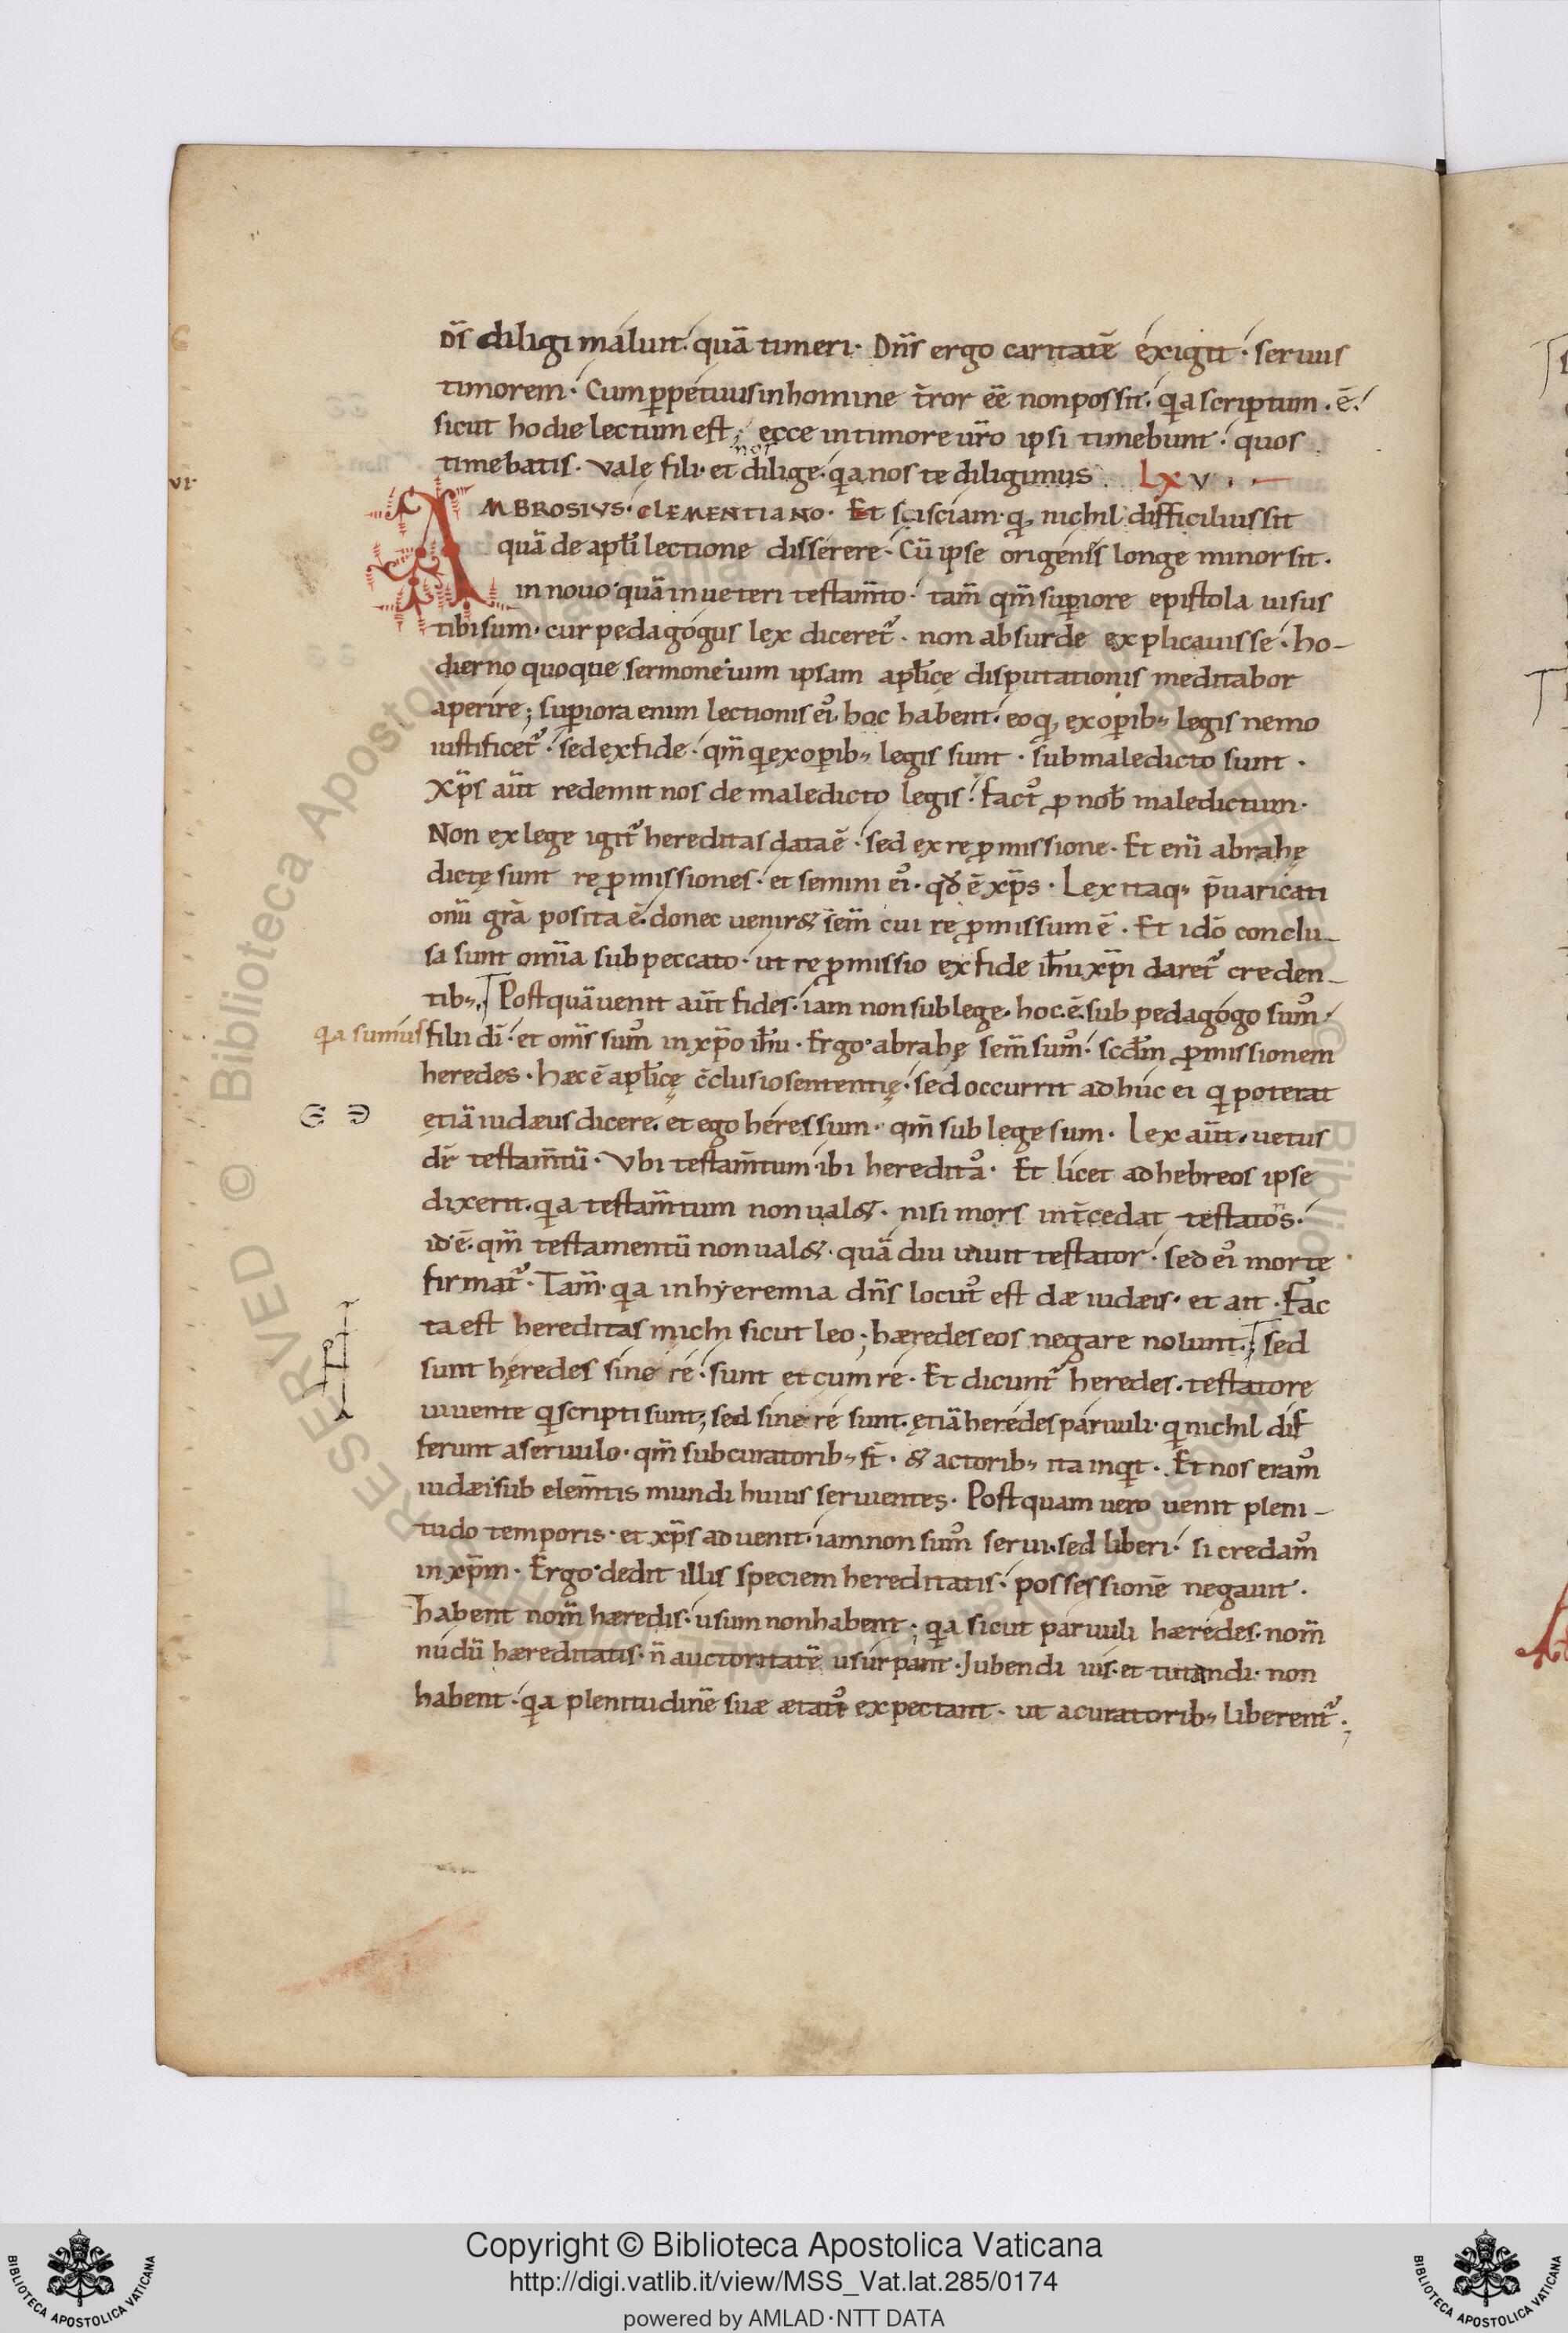 D̄s diligi maluit· quā timeri· Dn̄s ergo caritatē exigit· seruus
timorem· Cum ꝑpetuus in homine t̄ror eē̄ non possit· qa scriptum·ē·
sicut hodie lectum est; ecce in timore ur̄o ipsi timebunt· quos
timebatis· Vale fili· et nos dilige· qa nos te diligimus LXV
AMBROSIVS· CLEMENTIANO· Et si sciam· qꝫ nichil difficilius sit
quā de apłi lectione disserere· Cū ipse origenis longe minor sit·
in novo· quā in ueteri testam̄to· tam̄ qm̄ suꝑiore epistola uisus
tibi sum· cur pedagogus lex diceret᷒· non absurde explicauisse· ho-
dierno quoque sermone· uim ipsam apłicę disputationis meditabor
aperire; suꝑiora enim lectionis ei᷒ hoc habent· eo qꝫ ex oꝑibꝫ legis nemo
iustificet᷒· sed ex fide· qm̄ qi ex oꝑibꝫ legis sunt· sub maledicto sunt·
Xp̄s aūt redemit nos de maledicto legis· fact᷒ ꝓ nob̄ maledictum·
Non ex lege igit᷒ hereditas data ē· sed ex reꝓmissione· Et eni̅ abrahę
dictę sunt reꝓmissiones· et semini ei᷒· qd̄ ē xp̄s· Lex itaqꝫ p̄uaricati
onū grā posita ē· donec uenir& sem̄ cui reꝓmissum ē· Et idō conclu-
sa sunt om̄ia sub peccato· ut reꝓmissio ex fide ih̄u xp̄i daret᷒ creden-
tibꝫ; Postquā uenit aūt fides· iam non sub lege· hoc·ē· sub pedagogo sum᷒·
qa sumus filii dī· et om̄s sum᷒ in xp̄o ih̄u· Ergo· abrahę sem̄ sum᷒· scd̄m ꝓmissionem
heredes· hæc ē apłicę c̄clusio sententię· sed occurrit adhuc ei qi poterat
ętiā iudæus dicere· et ego heres sum· qm̄ sub lege sum· Lex aūt· uetus
dr̄ testam̄tū· Vbi testam̄tum· ibi heredita᷒· Et licet ad hebreos ipse
dixerit· qa testam̄tum non ual&· nisi mors int̄cedat testator̄s·
id·ē· qm̄ testamentū non ual&· quā diu uiuit testator· sed ei᷒ morte
firmat᷒· Tam̄· qa in hyeremia dn̄s locut᷒ est dæ iudæis· et ait· Fac
ta est hereditas michi sicut leo; hæredes eos negare nolunt; sed
sunt heredes sine re· sunt et cum re· Et dicunt᷒ heredes· testatore
uiuente qi scripti sunt; sed sine re sunt· ętiā heredes paruuli· qi nichil dif
ferunt a seruulo· qm̄ sub curatoribꝫ st̄· & actoribꝫ ita inqit· Et nos eram᷒
iudæi sub elem̄tis mundi huius seruientes· Postquam uero uenit pleni-
tudo temporis· et xp̄s aduenit· iam non sum᷒ serui· sed liberi· si credam᷒
in xp̄m· Ergo· dedit illis speciem hereditatis· possessionē negauit·
habent nom̄ hæredis· usum non habent; qa sicut paruuli hæredes· nom̄
nudū hæreditatis· n̄ auctoritatē usurpant· Jubendi ius· et tutandi· non
habent· qa plenitudinē suæ ætatis expectant· ut a curatoribꝫ liberent᷒·;
RESERVED © Biblioteca Apostolica Vaticana
Copyright © Biblioteca Apostolica Vaticana
http://digi.vatlib.it/view/MSS_Vat.lat.285/0174
powered by AMLAD·NTT DATA
BIBLIOTECA APOSTOLICA VATICANA
BIBLIOTECA APOSTOLICA VATICANA